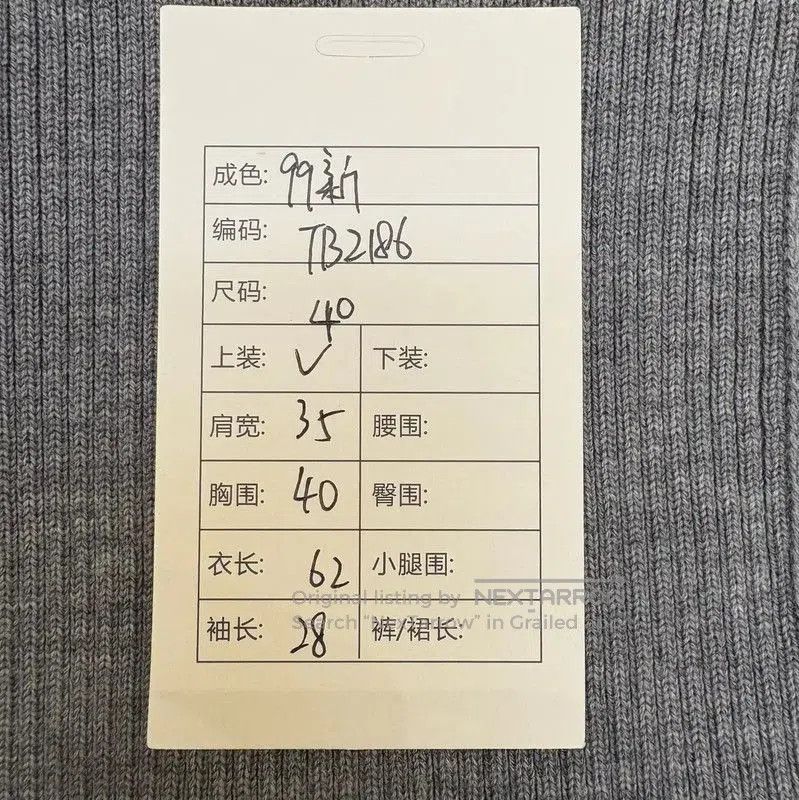 成色: 99新
编码: TB2186
尺码: 40
上装: ✓ 下装:
肩宽: 35 腰围:
胸围: 40 臀围:
衣长: 62 小腿围:
Original listing by NEXTARROW
袖长: 28 裤/裙长:
Search "NexTarrow" in Grailed